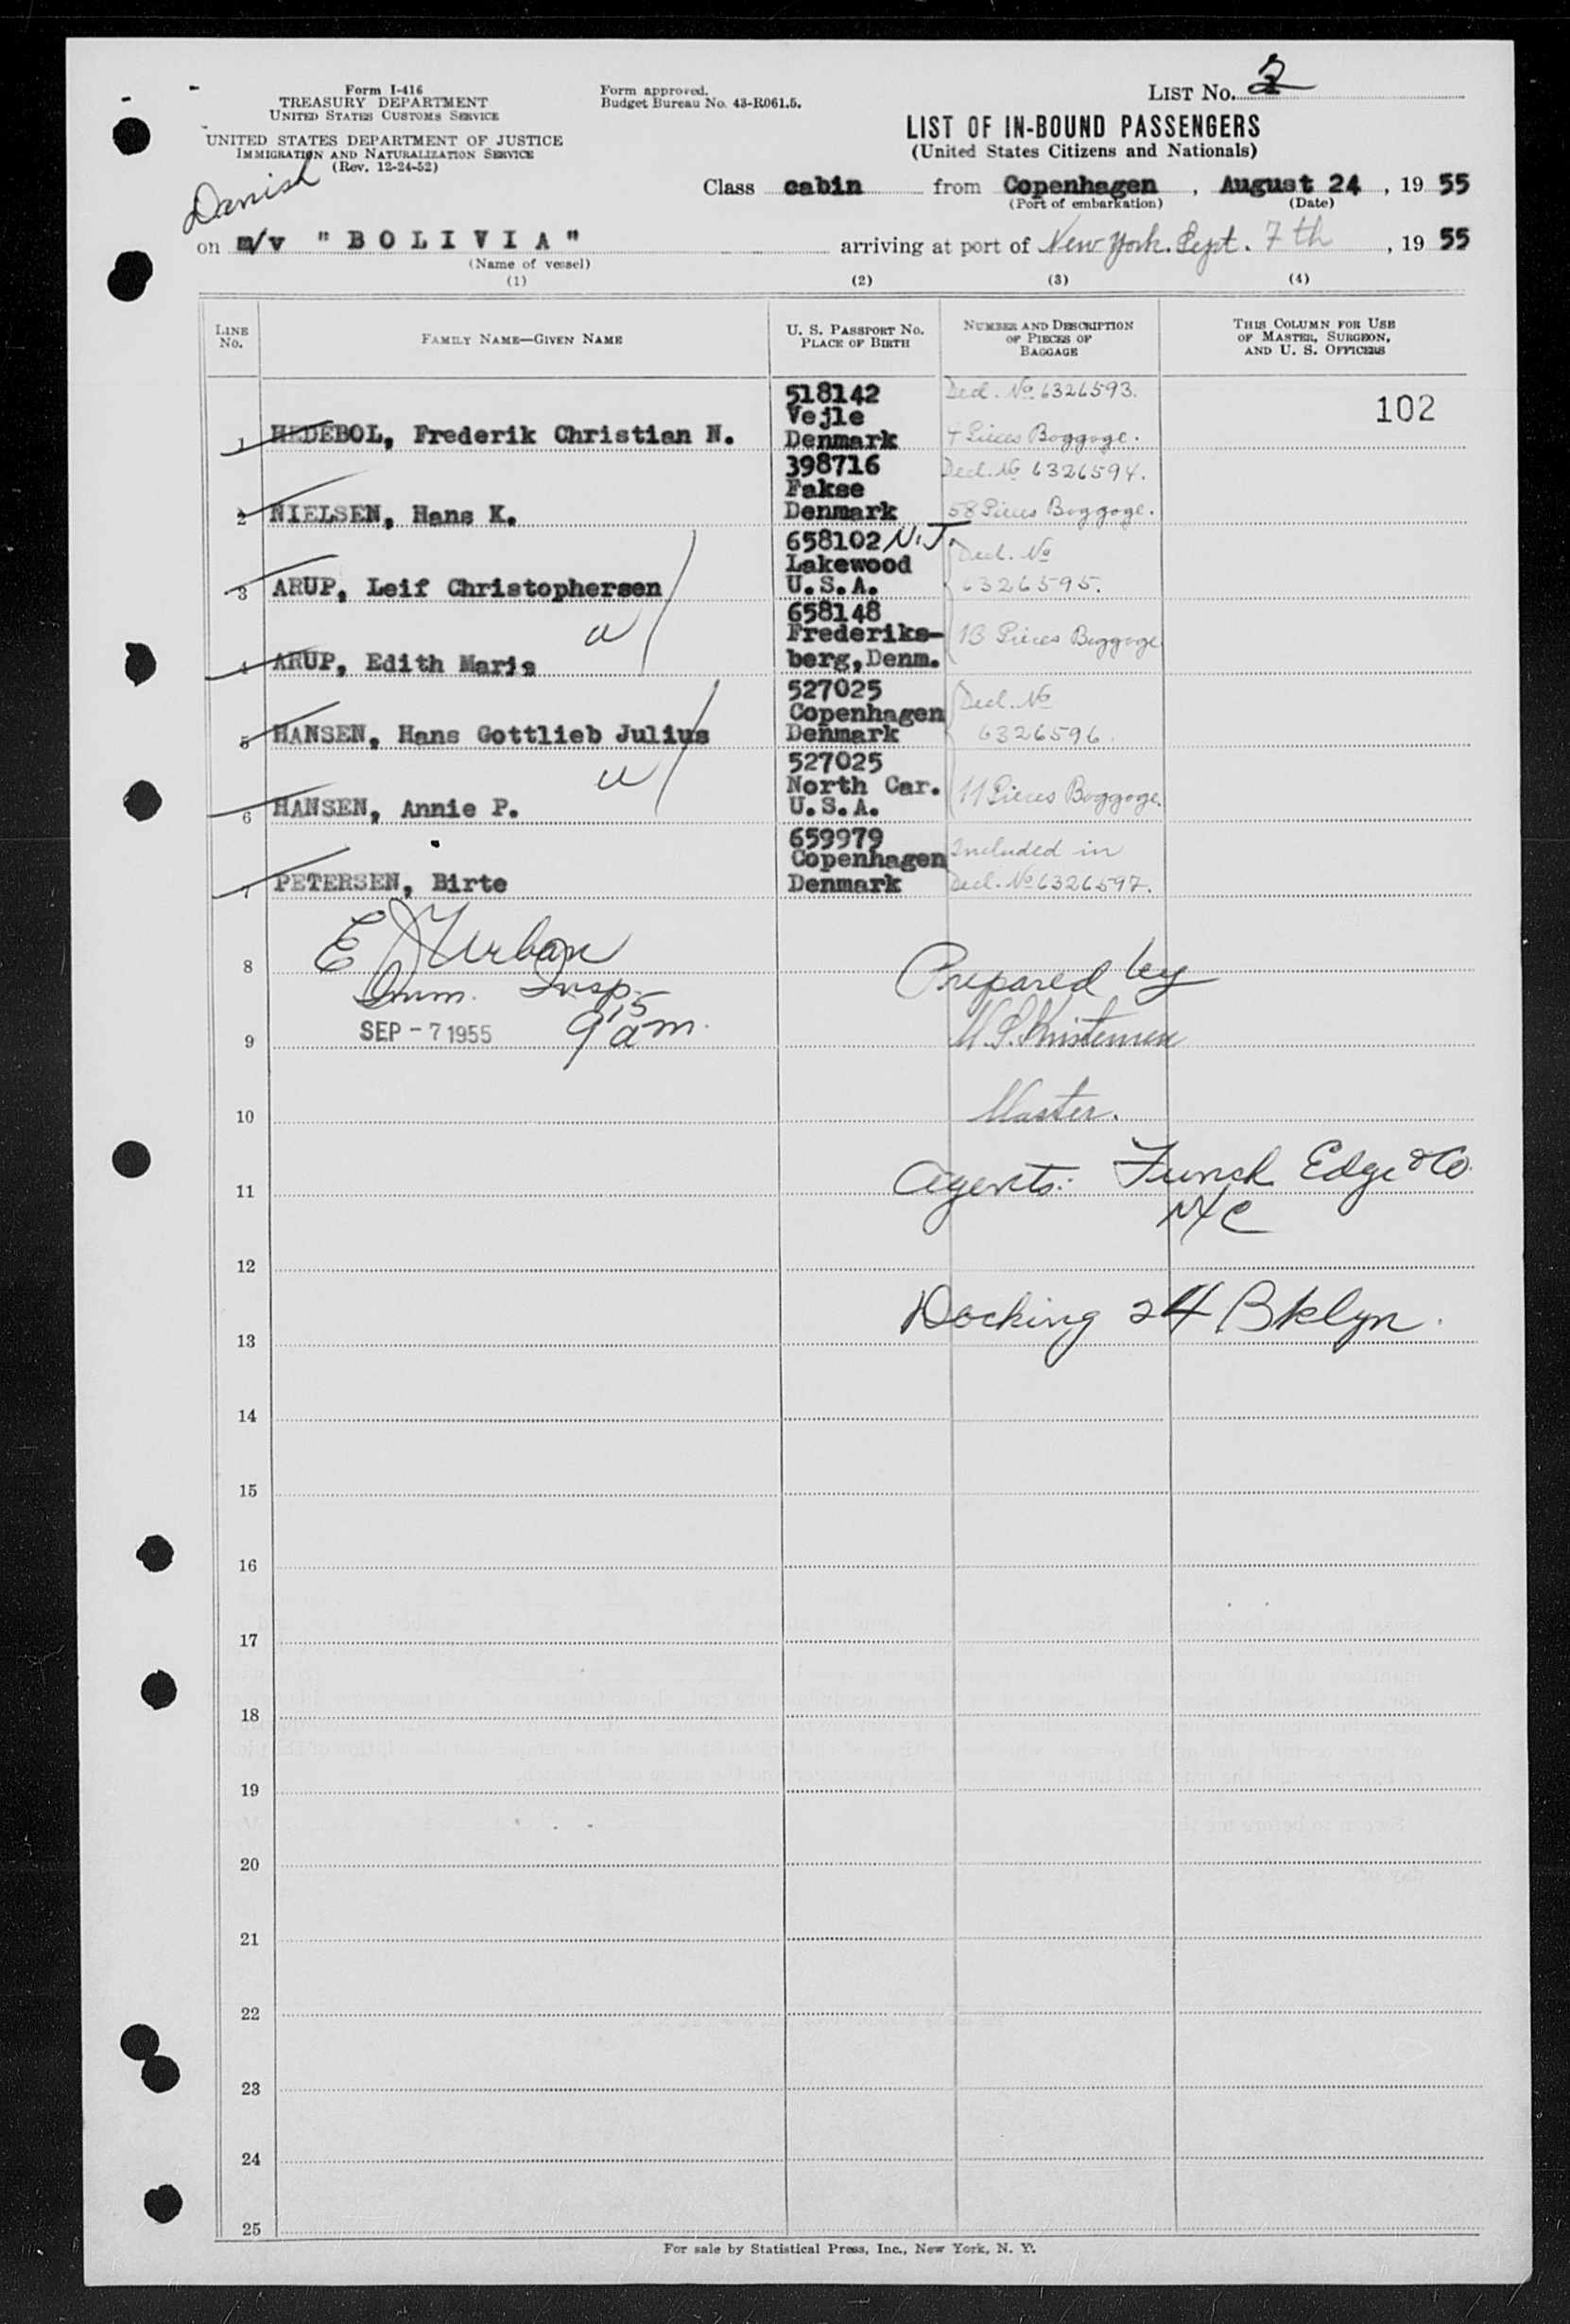 Form I-416
TREASURY DEPARTMENT
UNITED STATES CUSTOMS SERVICE
UNITED STATES DEPARTMENT OF JUSTICE
IMMIGRATION AND NATURALIZATION SERVICE
(Rev. 12-24-52)
Form approved.
Budget Bureau No. 43-R061.5.
LIST No. 2
LIST OF IN-BOUND PASSENGERS
(United States Citizens and Nationals)
Danish
Class cabin from Copenhagen, August 24, 1955
(Port of embarkation) (Date)
on m/v "BOLIVIA" arriving at port of New York. Sept. 7th, 1955
(Name of vessel)
(1) (2) (3) (4)
LINE No.
FAMILY NAME—GIVEN NAME
U. S. PASSPORT No.
PLACE OF BIRTH
NUMBER AND DESCRIPTION
OF PIECES OF
BAGGAGE
THIS COLUMN FOR USE
OF MASTER, SURGEON,
AND U. S. OFFICERS
102
1 HEDEBOL, Frederik Christian N.
518142
Vejle
Denmark
Decl. No. 6326593.
4 Pieces Baggage.
2 NIELSEN, Hans K.
398716
Fakse
Denmark
Decl. No 6326594.
58 Pieces Baggage.
3 ARUP, Leif Christophersen
658102 N.J.
Lakewood
U.S.A.
Decl. No
6326595.
4 ARUP, Edith Marie
658148
Frederiks-
berg, Denm.
13 Pieces Baggage
5 HANSEN, Hans Gottlieb Julius
527025
Copenhagen
Denmark
Decl. No
6326596.
6 HANSEN, Annie P.
527025
North Car.
U.S.A.
11 Pieces Baggage.
7 PETERSEN, Birte
659979
Copenhagen
Denmark
Included in
Decl. No 6326597.
E J Urban
8
Imm. Insp.
Prepared by
9
SEP - 7 1955 9 15 am.
10
Master.
11
Agents: Funch Edge & Co.
NYC
12
13
Docking 24 Bklyn.
14
15
16
17
18
19
20
21
22
23
24
25
For sale by Statistical Press, Inc., New York, N. Y.